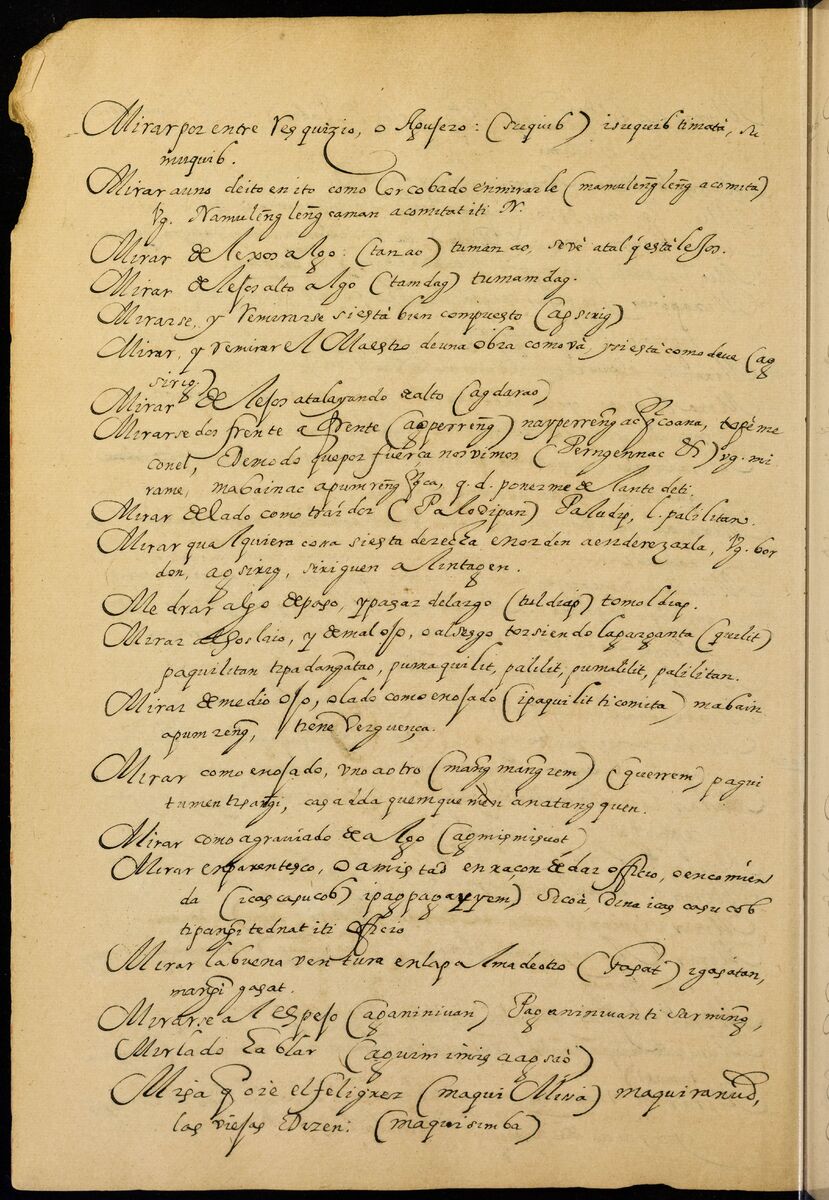 Mirar por entre resquizio, o Agusero: (suquib) isuquib timatà, su
muquib.
Mirar auno de ito en ito como Corcobado enmirarle (mamulen͠g len͠g acomita)
Vg. Namulen͠g len͠g caman acomitat iti N.
Mirar de lexos algo: (tanao) tumanao, se vè atal q́ està lexos.
Mirar de lejos alto algo (tamdag) tumamdag.
Mirarse, y remirarse si està bien compuesto (agsirig)
Mirar, y remirar el Maestro de una obra como và, y si està como deve (ag
sirig)
Mirar de lejos atalayando de alto (agdarao)
Mirarse dos frente a frente (agperren͠g) nayperren͠g ac coana, topème
conel, Demodo que por fuerca nos vimos (Perngennac) vg. mi
rame, mabain ac apumren͠g q. d. ponerme delante deti.
Mirar de lado como traidor (Palodipan) Paludip, l. palilitan.
Mirar qualquiera cosa si esta derecha en orden a enderezarla, Vg. bor
don, agsirig, siriguen a lintagen.
Medrar algo de paso, y pasar de largo (tuldiap) tomoldiap.
Mirar al soslaio, y de mal ojo, o al sesgo torsiendo la garganta (quilit)
paquilitan tipadangatao, pumaquilit, palilit, pumalilit, palilitan.
Mirar de medio ojo, o lado como enojado (ipaquilit ti comita) mabain
apumren͠g, tiene verguença.
Mirar como enojado, uno a otro (man͠g man͠grem) (guerrem) pagui
tumen casa ida quemquemen anatang quen.
Mirar como agraviado de algo (agmismisuot)
Mirar en parentesco, o amistad en raçon de dar officio, o encomien
da (icascasucob) ipagpagayyem) sicoà, Dinaicas casucob
tednat iti officio
Mirar la buena ventura en la palma de otro (gasat) igasatan,
gasat.
Mirarse al espejo (aganinivan) Paganinivan ti sarmin͠g,
Mirlado hablar (aguim imis agsaò)
Misa q̃ oie el feligrez (maqui Misa)
las viejas dizen: (maquisimba)